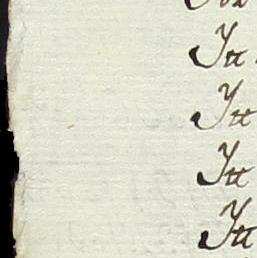 Itt
Itt
Itt
Itt